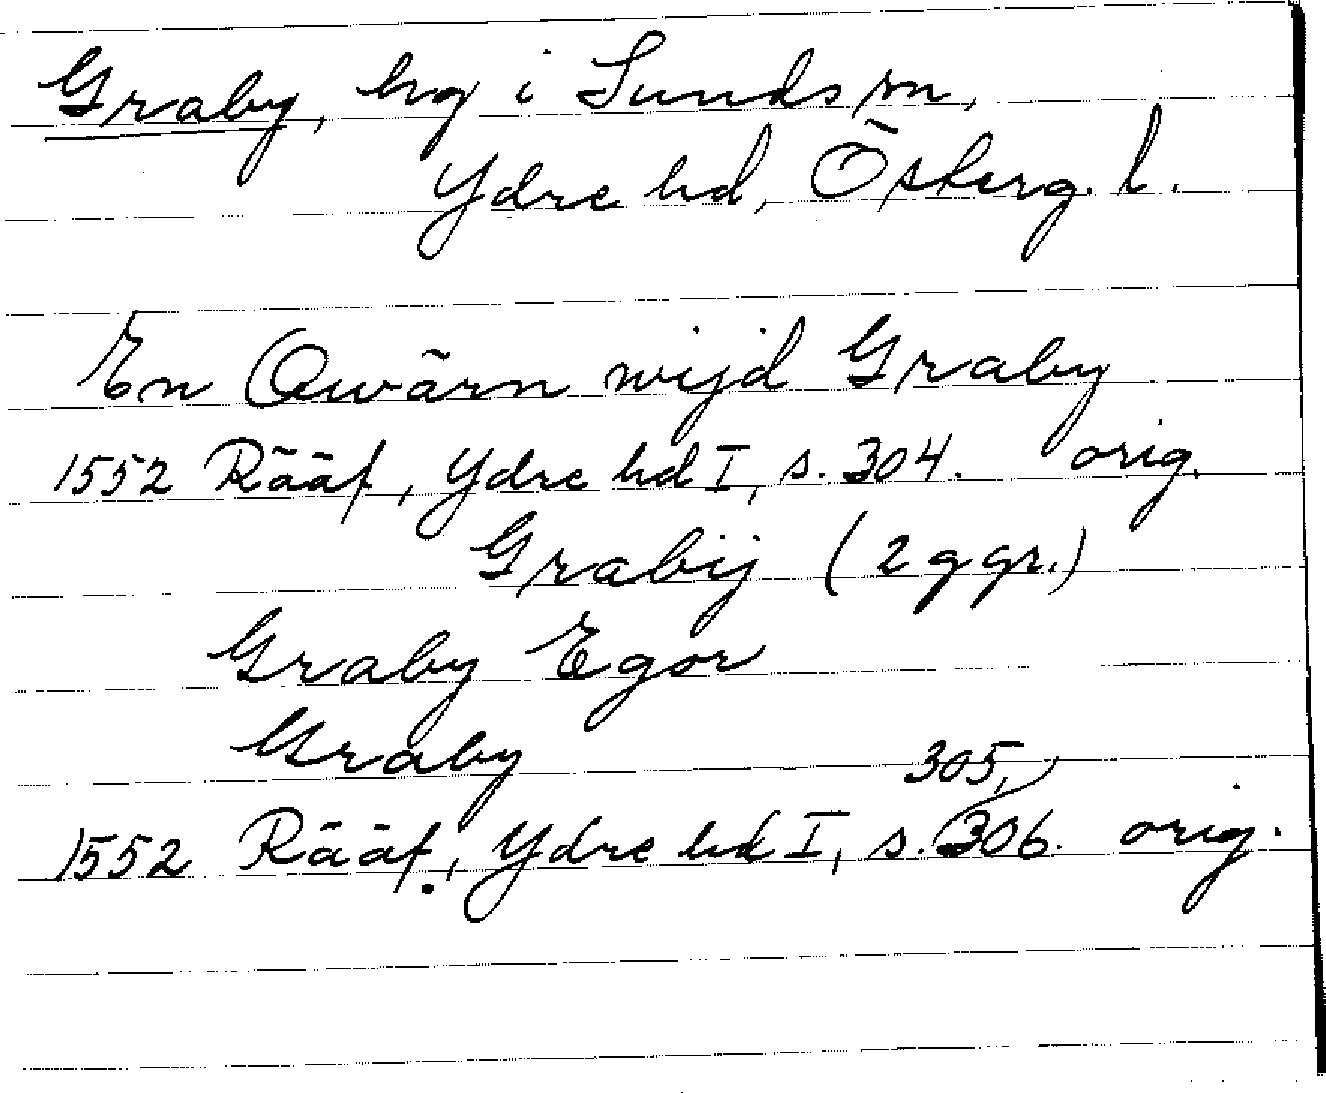 Graby, hg i Sunds sn,
Ydre hd, Österg. l.
En Qwärn wijd Graby
1552 Rääf, Ydre hd I, s. 304. orig.
Grabij (2 ggr.)
Graby Egor
Graby
305,
1552 Rääf, Ydre hd I, s. 306. orig.